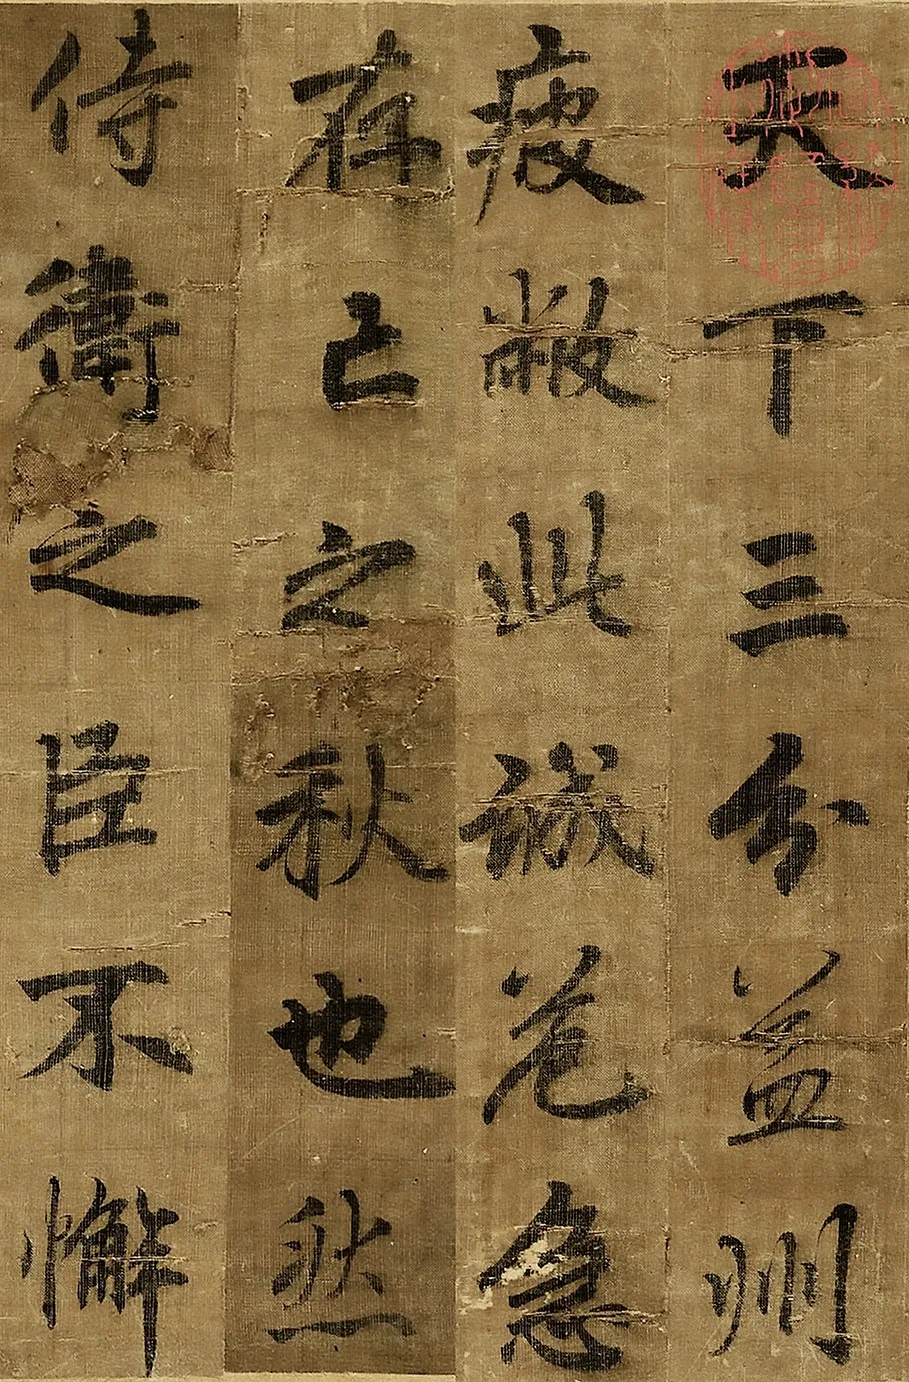 天下三分益州
疲敝此誠危急
存亡之秋也然
侍衛之臣不懈